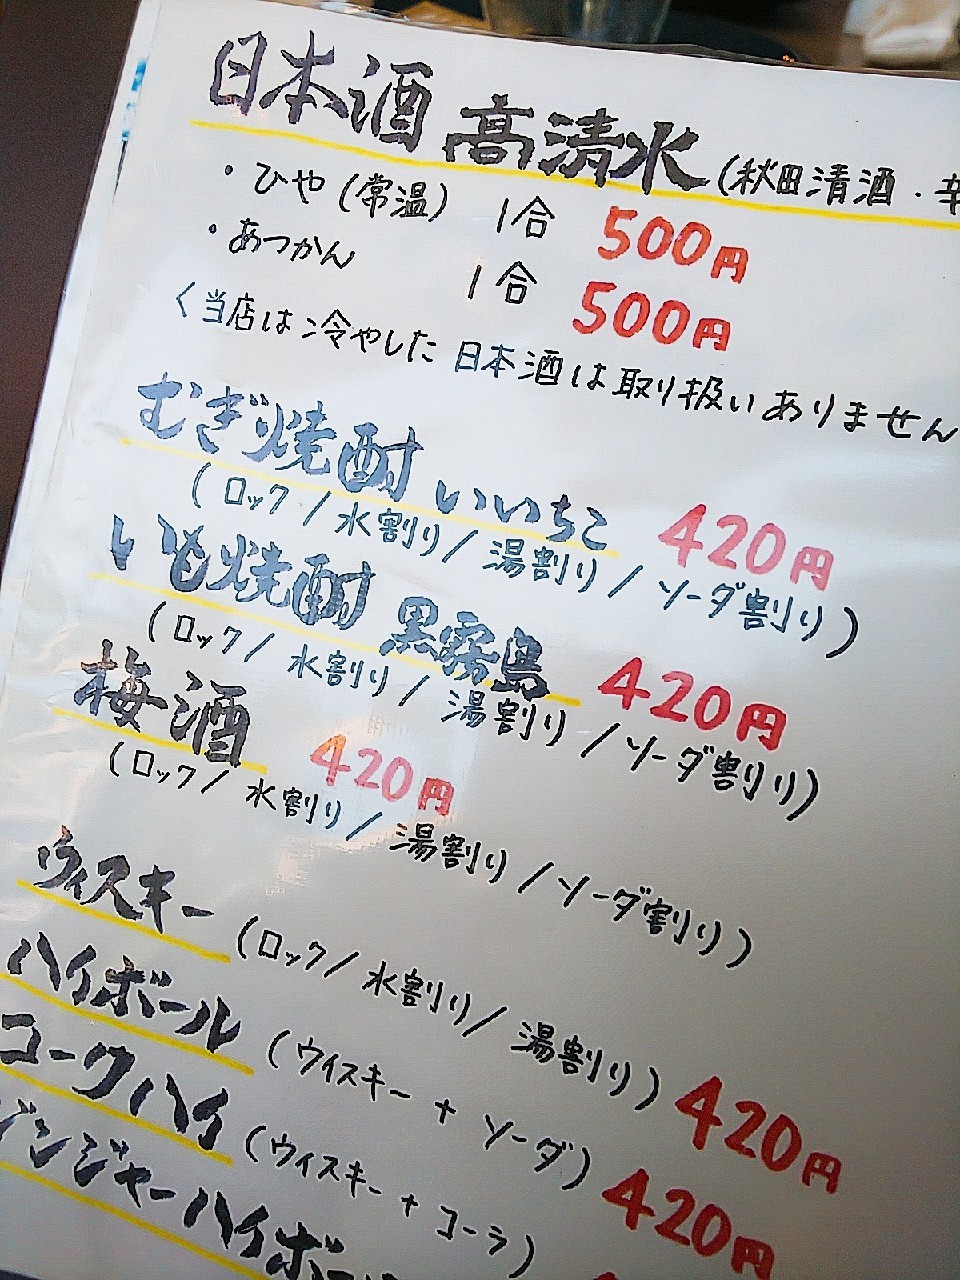 日本酒 高清水 (秋田清酒・辛
・ひや (常温) 1合 500円
・あつかん 1合 500円
く当店は冷やした日本酒は取り扱いありません
むぎ焼酎 いいちこ 420円
(ロック/水割り/湯割り/ソーダ割り)
いも焼酎 黒霧島 420円
(ロック/水割り/湯割り/ソーダ割り)
梅酒 420円
(ロック/水割り/湯割り/ソーダ割り)
ウィスキー (ロック/水割り/湯割り) 420円
ハイボール (ウイスキー + ソーダ) 420円
コークハイ (ウィスキー + コーラ)
ジンジャーハイボ